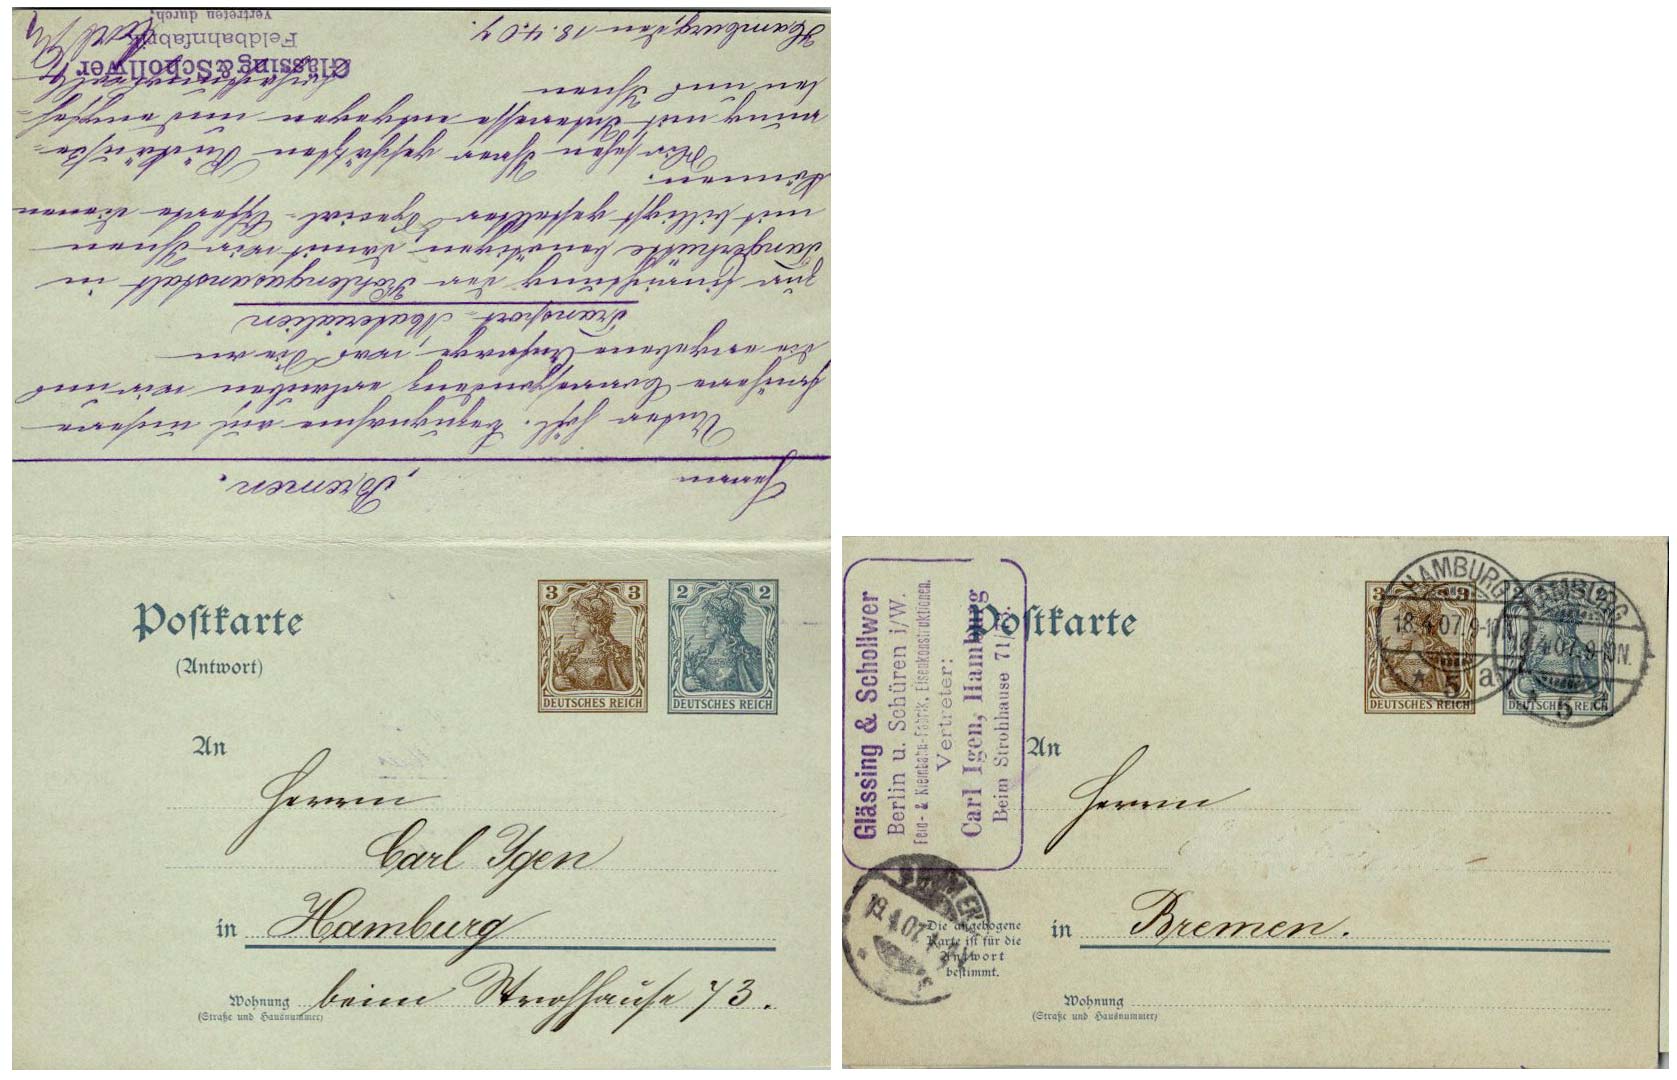 Herrn , Bremen.
Unter höfl. Bezugnahme auf unsere
frühere Correspondenz erlauben wir uns
die ergebene Anfrage, was Sie an
Transport-Materialien
zur Einrichtung der Kohlengasanstalt in
Tangerhütte benötigen, damit wir Ihnen
mit billigst gestellter Special-Offerte dienen
können.
Wir sehen Ihrer geschätzten Rückäusse=
rung mit Interesse entgegen und empfeh=
len uns Ihnen
hochachtungsvoll
Glässing & Schollwer
Feldbahnfabrik
vertreten durch:
Hamburg, den 18.4.07.
Postkarte
(Antwort)
3 3
DEUTSCHES REICH
2 2
DEUTSCHES REICH
An
Herrn
Carl Igen
in Hamburg
Wohnung beim Strohhause 73.
(Straße und Hausnummer)
Glässing & Schollwer
Berlin u. Schüren i/W.
Feld- & Kleinbahn-Fabrik, Eisenkonstruktionen.
Vertreter:
Carl Igen, Hamburg
Beim Strohhause 71/73.
Postkarte
3 3
DEUTSCHES REICH
2 2
DEUTSCHES REICH
HAMBURG
18.4.07. 9-10N.
* 5 a
HAMBURG
18.4.07. 9-10N.
* 5
An
Herrn
in Bremen.
BREMEN
19.4.07.
Die angebogene
Karte ist für die
Antwort
bestimmt.
Wohnung
(Straße und Hausnummer)